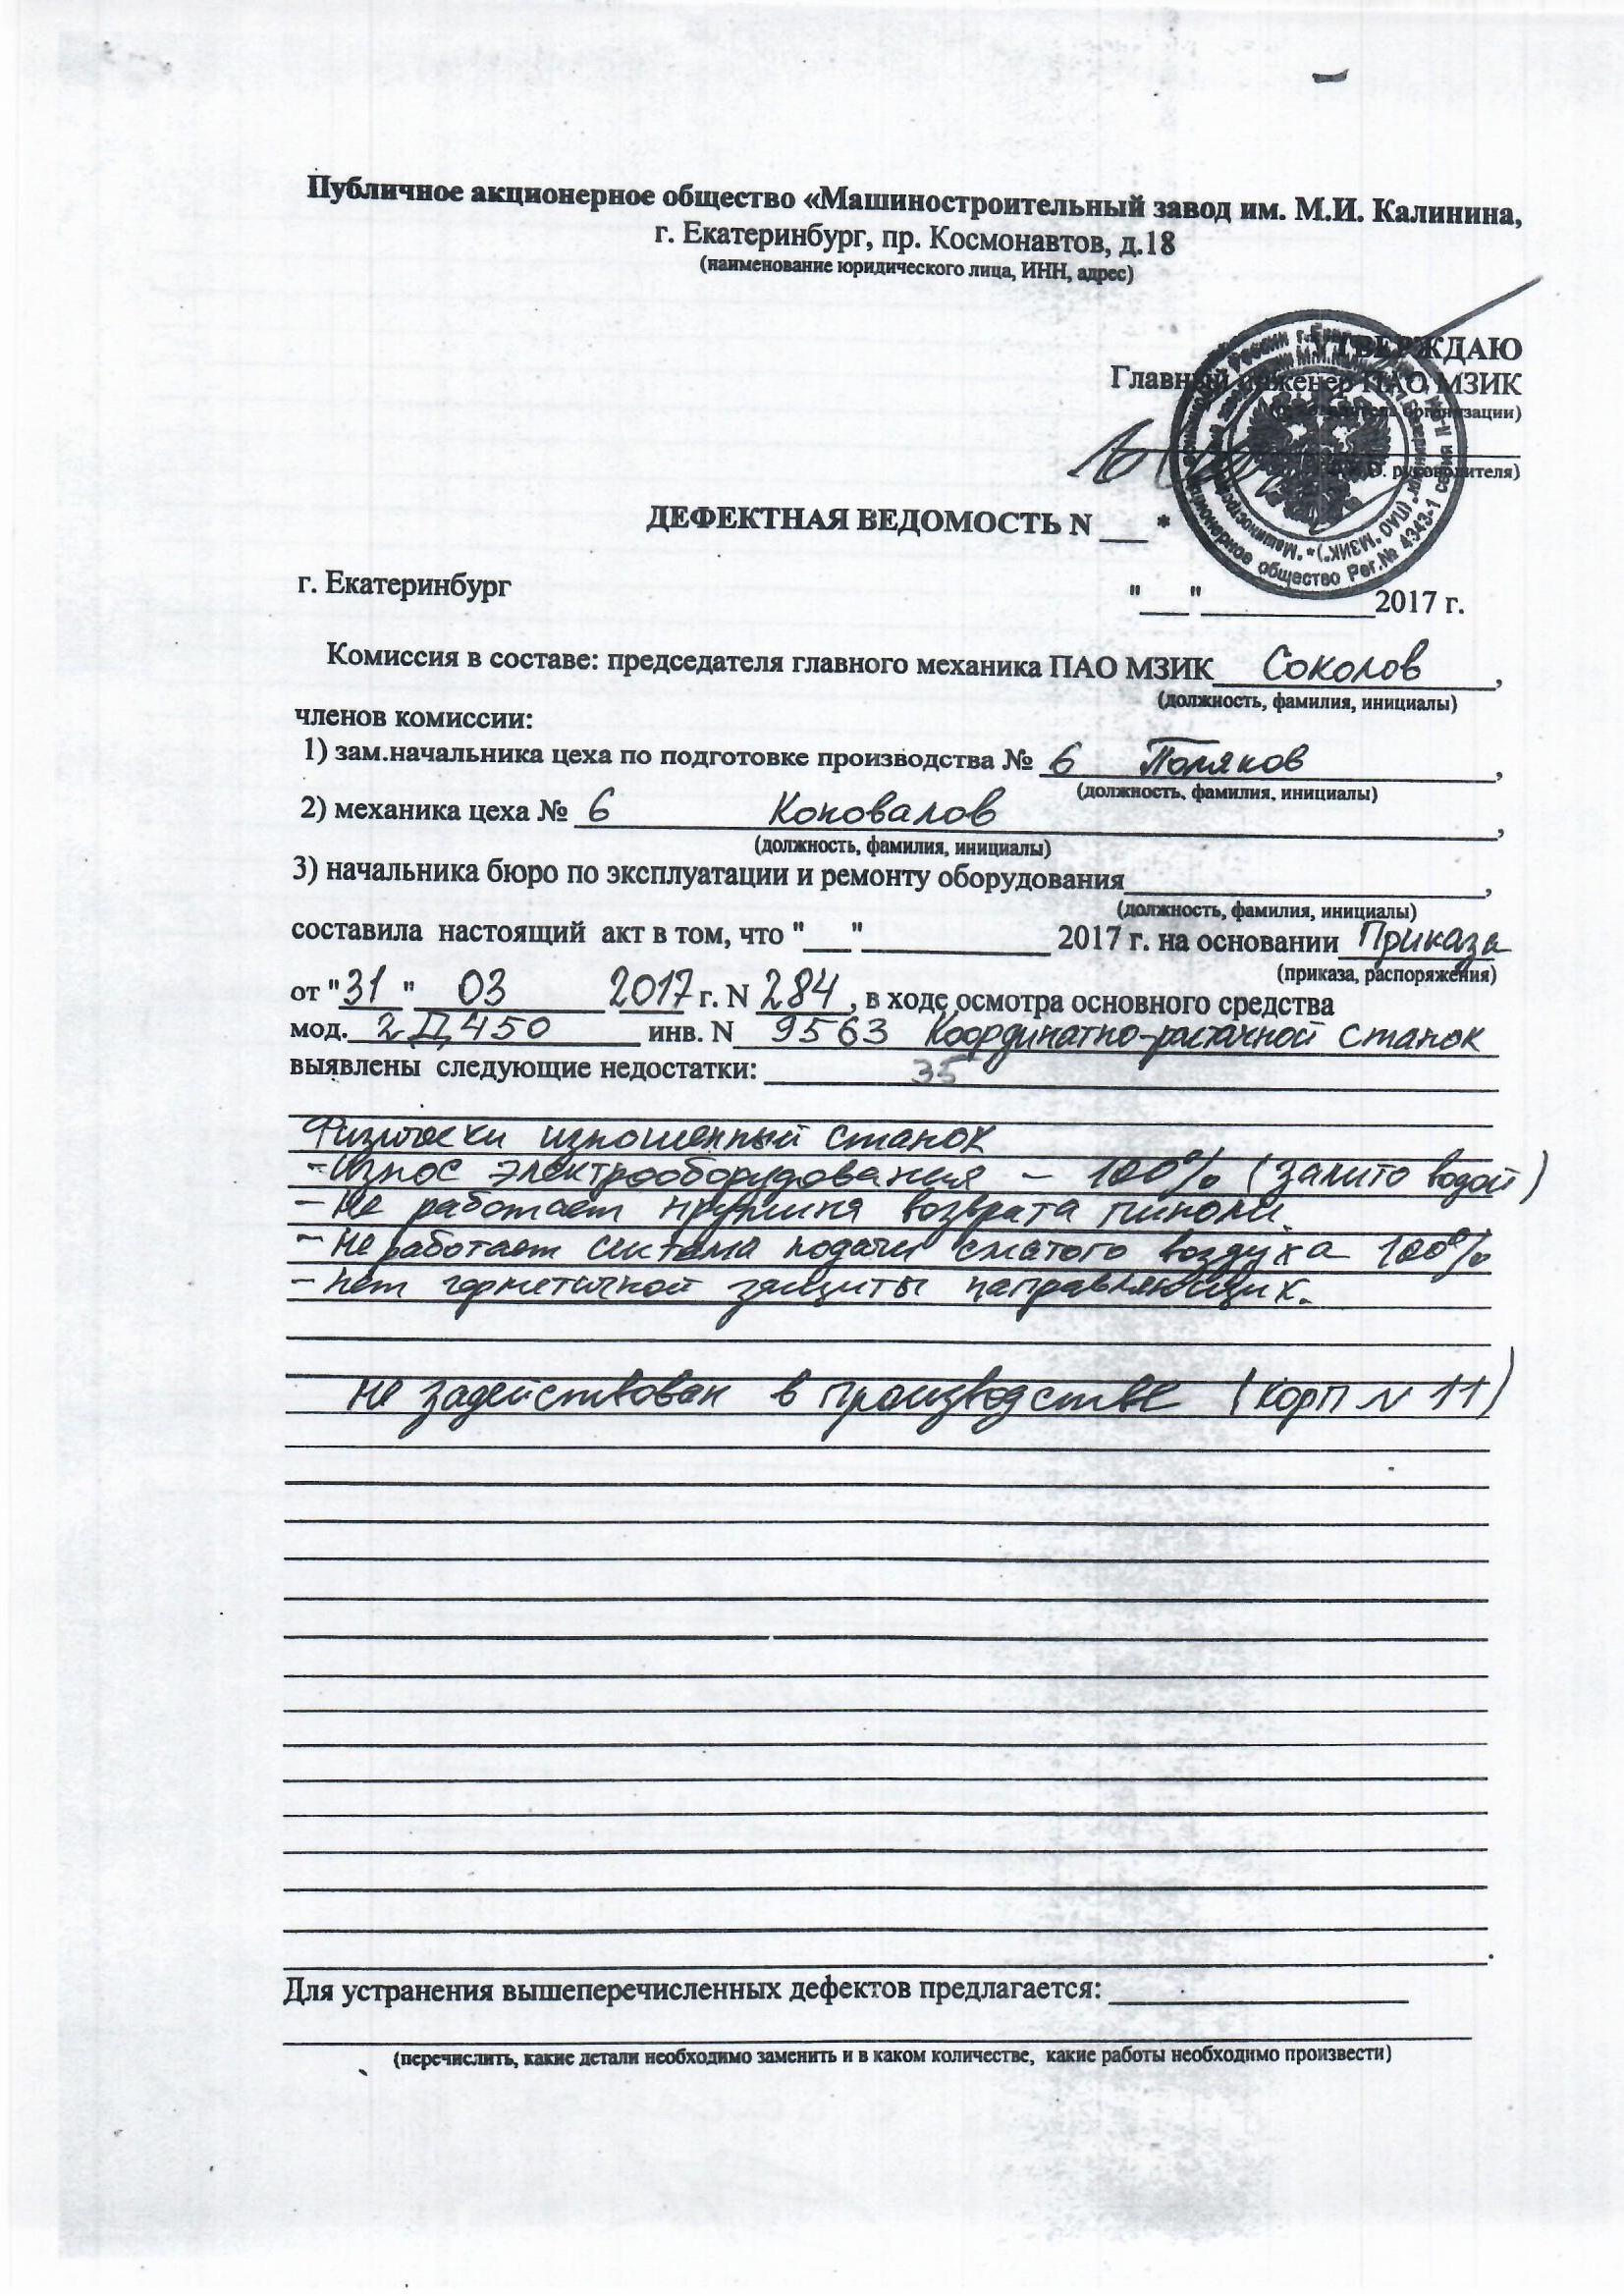 Публичное акционерное общество «Машиностроительный завод им. М.И. Калинина,
г. Екатеринбург, пр. Космонавтов, д.18
(наименование юридического лица, ИНН, адрес)
УТВЕРЖДАЮ
Главный инженер ПАО МЗИК
организации)
руководителя)
общество Рег.№ 4343-1 серия
ДЕФЕКТНАЯ ВЕДОМОСТЬ N ___ *
г. Екатеринбург "___"____________2017 г.
Комиссия в составе: председателя главного механика ПАО МЗИК Соколов,
(должность, фамилия, инициалы)
членов комиссии:
1) зам.начальника цеха по подготовке производства № 6 Поляков,
(должность, фамилия, инициалы)
2) механика цеха № 6 Коновалов,
(должность, фамилия, инициалы)
3) начальника бюро по эксплуатации и ремонту оборудования____________,
(должность, фамилия, инициалы)
составила настоящий акт в том, что "___"____________ 2017 г. на основании Приказа
(приказа, распоряжения)
от "31" 03 2017 г. N 284, в ходе осмотра основного средства
мод. 2Д450 инв. N 9563 Координатно-расточной станок
выявлены следующие недостатки: 35
Физически изношенный станок
- Износ электрооборудования - 100% (залито водой)
- Не работает пружина возврата пиноли.
- Не работает система подачи сжатого воздуха 100%
- Нет герметичной защиты направляющих.
Не задействован в производстве (корп N 11)
Для устранения вышеперечисленных дефектов предлагается: ____________
(перечислить, какие детали необходимо заменить и в каком количестве, какие работы необходимо произвести)